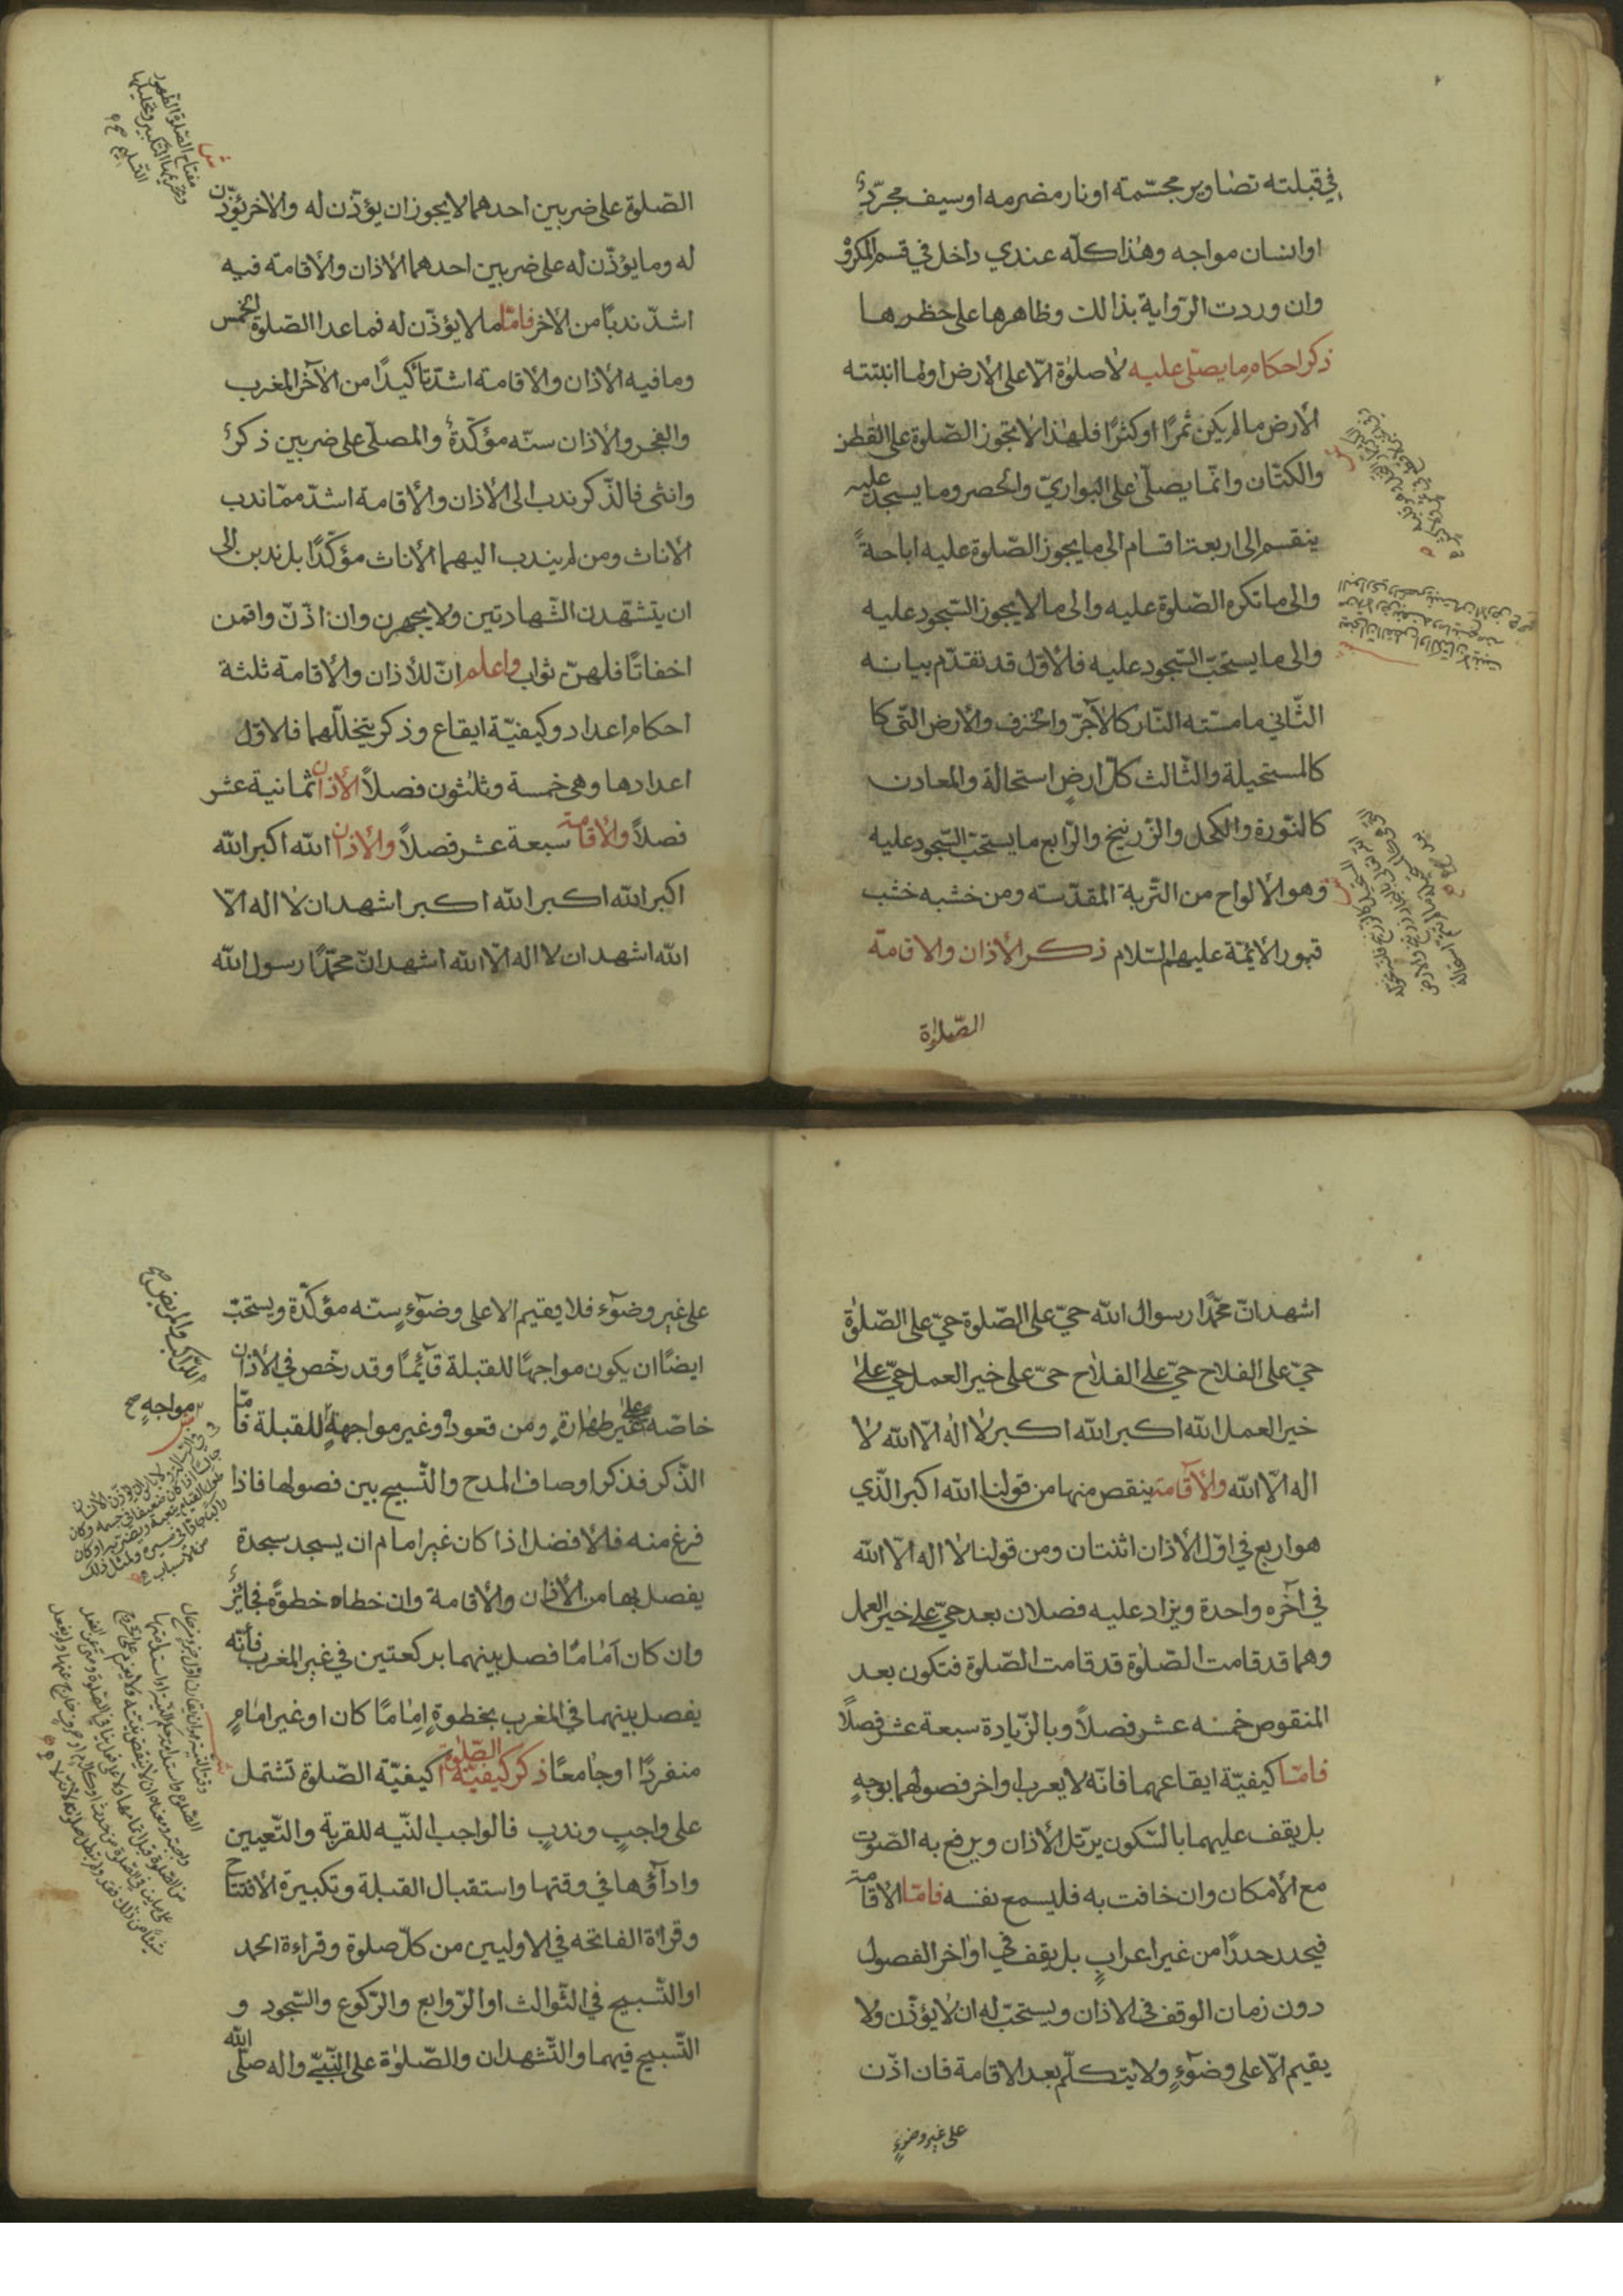 في قبلته تصاوير مجسّمة او نار مضرمه او سيف مجرّد
او انسان مواجه وهذا كلّه عندي داخل في قسم المكروه
وان وردت الرّواية بذالك وظاهرها على حظرها
ذكر احكام ما يصلّى عليه لاصلوٰة الّا على الأرض او لما انبتته
الأرض ما لم يكن ثمرًا او كثرًا فلهٰذا لا تجوز الصّلوة على القطن
والكتّان وانّما يصلّى على البواريّ والحصر وما يسجد عليه
ينقسم الى اربعة اقسام الى ما يجوز الصّلوة عليه اباحةً
والى ما تكره الصّلوة عليه والى ما لا يجوز السّجود عليه
والى ما يستحبّ السّجود عليه فلأوّل قد تقدّم بيانه
الثّاني ما مسّته النّار كالآجرّ والخزف والأرض التّى كا
كالمستحيلة والثّالث كلّ ارضٍ استحالة والمعادن
كالنّورة والكحل والزّرنيخ والرّابع ما يستحبّ السّجود عليه
وهو الألواح من التّربة المقدّسته ومن خشبه خشب
قبور الأئمّة عليهم السّلام ذكر الأذان والاقامة
الصّلوٰة
مفتاح الصّلوة الطّهور
وتحريمها التّكبير وتحليلها
التّسليم صح
الصّلوة على ضربين احدهما لا يجوز ان يؤذّن له والاخر يؤذّن
له وما يؤذّن له على ضربين احدهما الأذان والأقامة فيه
اشدّ ندبًا من الأخر فامّا ما لا يؤذّن له فما عدا الصّلوة الخمس
وما فيه الأذان والأقامة اشدّ تأكيدًا من الآخر المغرب
والفجر والأذان سنّه مؤكّدةٌ والمصلّى على ضربين ذكر
وانثى فالذّكر ندب الى الأذان والأقامة اشدّ ممّا ندب
الأناث ومن لم يندب اليهما الأناث مؤكّدًا بل ندبن الى
ان يتشهّدن الشّهادتين ولا يجهرن وان اذّنّ واقمن
اخفاتًا فلهنّ ثواب واعلم انّ للأذان والأقامة ثلثة
احكام اعداد وكيفيّة ايقاع وذكر يتخلّلهما فلاوّل
اعدادها وهى خمسة وثلثون فصلاً الأذان ثمانية عشر
فصلاً والأقامة سبعة عشر فصلاً والأذان الله اكبر الله
اكبر الله اكبر الله اكبر اشهد ان لا اله الّا
الله اشهد ان لا اله الّا الله اشهد انّ محمّدًا رسول الله
اشهد انّ محمّدًا رسول الله حيّ على الصّلوة حيّ على الصّلوٰة
حيّ على الفلاح حيّ على الفلاح حيّ على خير العمل حيّ على
خير العمل الله اكبر الله اكبر لا اله الّا الله لا
اله الّا الله والأقامة ينقص منها من قولنا الله اكبر الّذي
هو اربع في اوّل الأذان اثنتان ومن قولنا لا اله الّا الله
في آخره واحدة ويزاد عليه فصلان بعد حيّ على خير العمل
وهما قد قامت الصّلوٰة قد قامت الصّلوة فتكون بعد
المنقوص خمسه عشر فصلاً وبالزّيادة سبعة عشر فصلًا
فامّا كيفيّة ايقاعهما فانّه لا يعرب اواخر فصولهما بوجهٍ
بل يقف عليهما بالسّكون يرتّل الأذان ويرفع به الصّوت
مع الأمكان وان خافت به فليسمع نفسه فامّا الاقامة
فيحدر حدرًا من غير اعرابٍ بل يقف في اواخر الفصول
دون زمان الوقف في الاذان ويستحبّ له ان لا يؤذّن ولا
يقيم الّا على وضوءٍ ولا يتكلّم بعد الاقامة فان اذّن
على غير وضوءٍ
على غير وضوٓء فلا يقيم الا على وضوٓءٍ سنّه مؤكّدة ويستحبّ
ايضًا ان يكون مواجهًا للقبلة قآئمًا وقد رخّص في الأذان
خاصّه على غير طهارةٍ ومن قعود او غير مواجهةٍ للقبلة فامّا
الذّكر فذكر اوصاف المدح والتّسبيح بين فصولها فاذا
فرغ منه فلأفضل اذا كان غير امام ان يسجد سجدة
يفصل بها من الأذان والأقامة وان خطاه خطوةً فجائز
وان كان امامًا فصل بينهما بركعتين في غير المغرب فأنّه
يفصل بينهما في المغرب بخطوةٍ امامًا كان او غير امامٍ
منفردًا او جامعًا ذكر كيفيّة الصّلوة كيفيّة الصّلوة تشتمل
على واجبٍ وندبٍ فالواجب النّيه للقربة والتّعيين
وادآؤها في وقتها واستقبال القبلة وتكبيرة الأفتتاح
وقراة الفاتحه في الاوليين من كلّ صلوة وقراءة الحمد
او التّسبيح في الثّوالث او الرّوابع والرّكوع والسّجود و
التّسبيح فيهما والتّشهدان والصّلوٰة على النّبيّ واله صلّى الله
الرّاكب والمريض صح
مواجهٍ صح